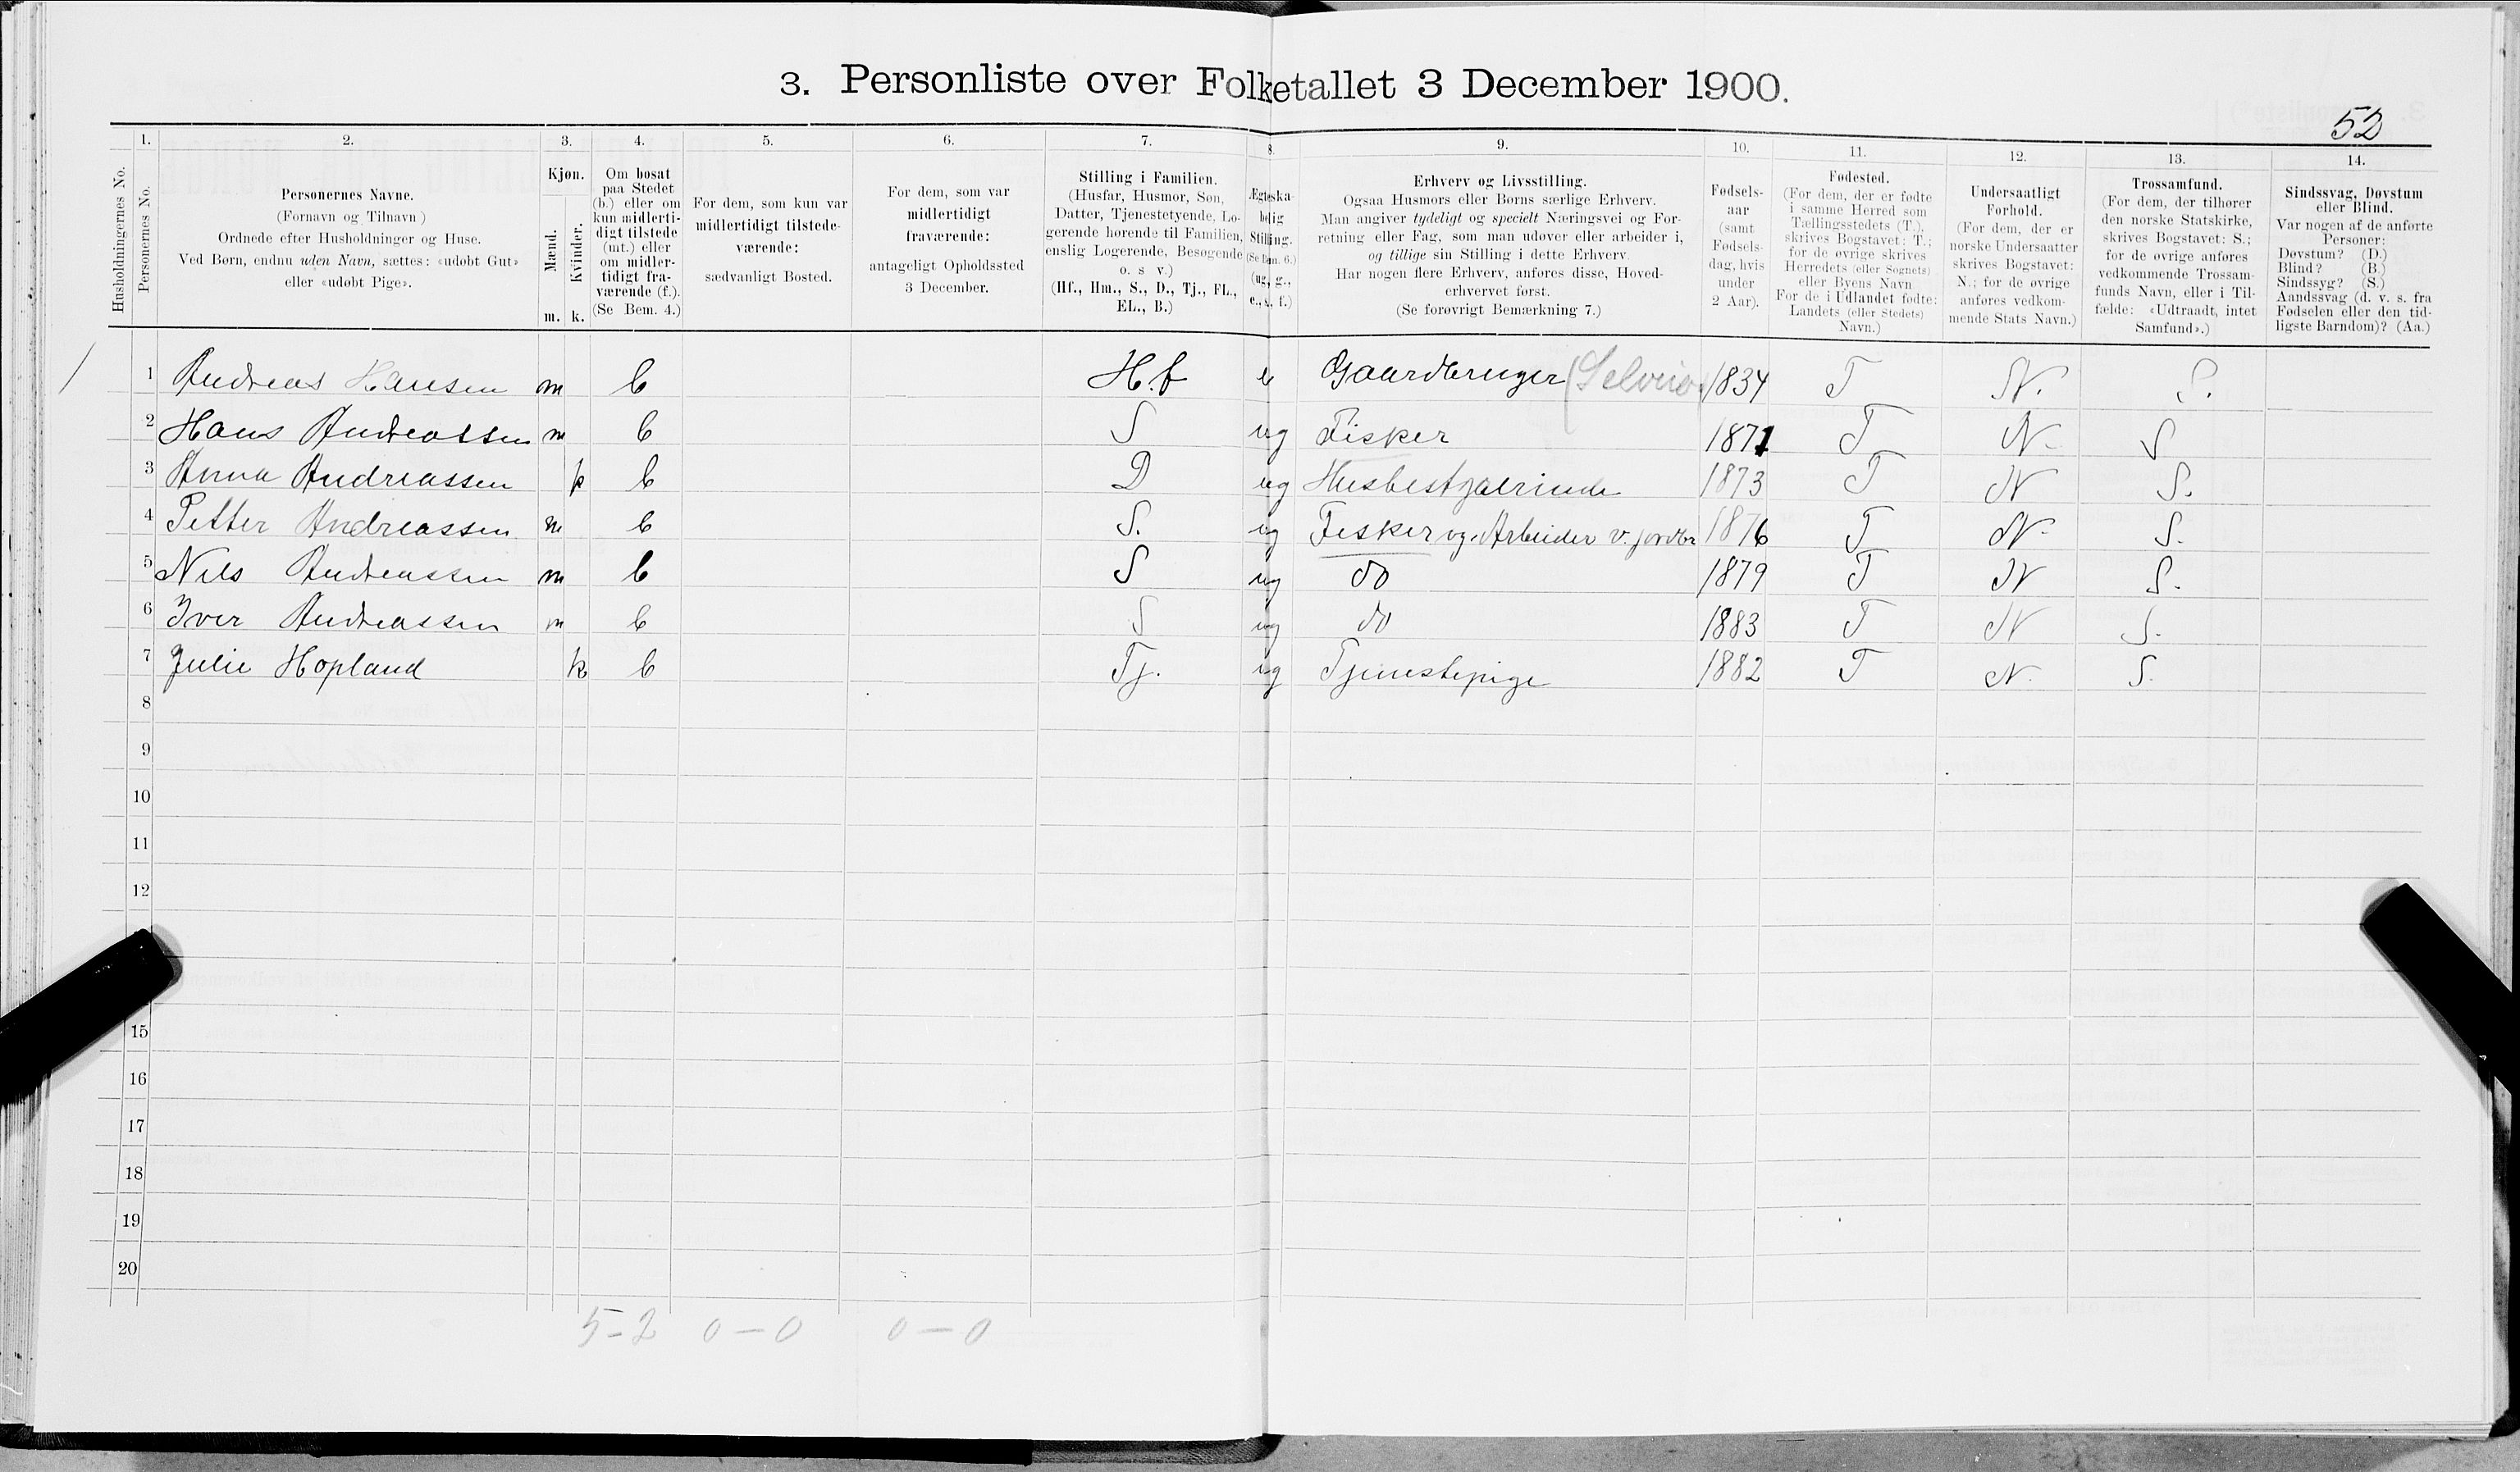 3. Personliste over Folketallet 3 December 1900.
52
Husholdningernes No.
1.
Personernes No.
2.
Personernes Navne.
(Fornavn og Tilnavn)
Ordnede efter Husholdninger og Huse.
Ved Børn, endnu uden Navn, sættes: «udøbt Gut»
eller «udøbt Pige».
3.
Kjøn.
Mænd.
Kvinder.
m. k.
4.
Om bosat
paa Stedet
(b.) eller om
kun midlerti-
digt tilstede
(mt.) eller
om midler-
tidigt fra-
værende (f.).
(Se Bem. 4.)
5.
For dem, som kun var
midlertidigt tilstede-
værende:
sædvanligt Bosted.
6.
For dem, som var
midlertidigt
fraværende:
antageligt Opholdssted
3 December.
7.
Stilling i Familien.
(Husfar, Husmor, Søn,
Datter, Tjenestetyende, Lo-
gerende hørende til Familien,
enslig Logerende, Besøgende
o. s v.)
(Hf., Hm., S., D., Tj., FL.,
EL., B.)
8.
Ægteska-
belig
Stilling.
(Se Bem. 6.)
(ug., g.,
e., s., f.)
9.
Erhverv og Livsstilling.
Ogsaa Husmors eller Børns særlige Erhverv.
Man angiver tydeligt og specielt Næringsvei og For-
retning eller Fag, som man udøver eller arbeider i,
og tillige sin Stilling i dette Erhverv.
Har nogen flere Erhverv, anføres disse, Hoved-
erhvervet først.
(Se forøvrigt Bemærkning 7.)
10.
Fødsels-
aar
(samt
Fødsels-
dag, hvis
under
2 Aar).
11.
Fødested.
(For dem, der er fødte
i samme Herred som
Tællingsstedets (T.),
skrives Bogstavet: T.;
for de øvrige skrives
Herredets (eller Sognets)
eller Byens Navn
For de i Udlandet fødte:
Landets (eller Stedets)
Navn.)
12.
Undersaatligt
Forhold.
(For dem, der er
norske Undersaatter
skrives Bogstavet:
N.; for de øvrige
anføres vedkom-
mende Stats Navn.)
13.
Trossamfund.
(For dem, der tilhører
den norske Statskirke,
skrives Bogstavet: S.;
for de øvrige anføres
vedkommende Trossam-
funds Navn, eller i Til-
fælde: «Udtraadt, intet
Samfund».)
14.
Sindssvag, Døvstum
eller Blind.
Var nogen af de anførte
Personer:
Døvstum? (D.)
Blind? (B.)
Sindssyg? (S.)
Aandssvag (d. v. s. fra
Fødselen eller den tid-
ligste Barndom)? (Aa.)
1 Andreas Hansen m b H.f e Gaardbruger (Selveier 1834 T N. S.
2 Hans Andreassen m b S ug Fisker 1871 T N. S
3 Anna Andreassen k b D ug Husbestyrerinde 1873 T N S.
4 Petter Andreassen m b S. ug Fisker og Arbeider v. jordbr 1876 T N. S.
5 Nils Andreassen m b S ug do 1879 T N S.
6 Iver Andreassen m b S ug do 1883 T N S.
7 Julie Hopland k b Tj. ug Tjenestepige 1882 T N. S.
8
9
10
11
12
15
16
17
18
19
20
5-2 0-0 0-0